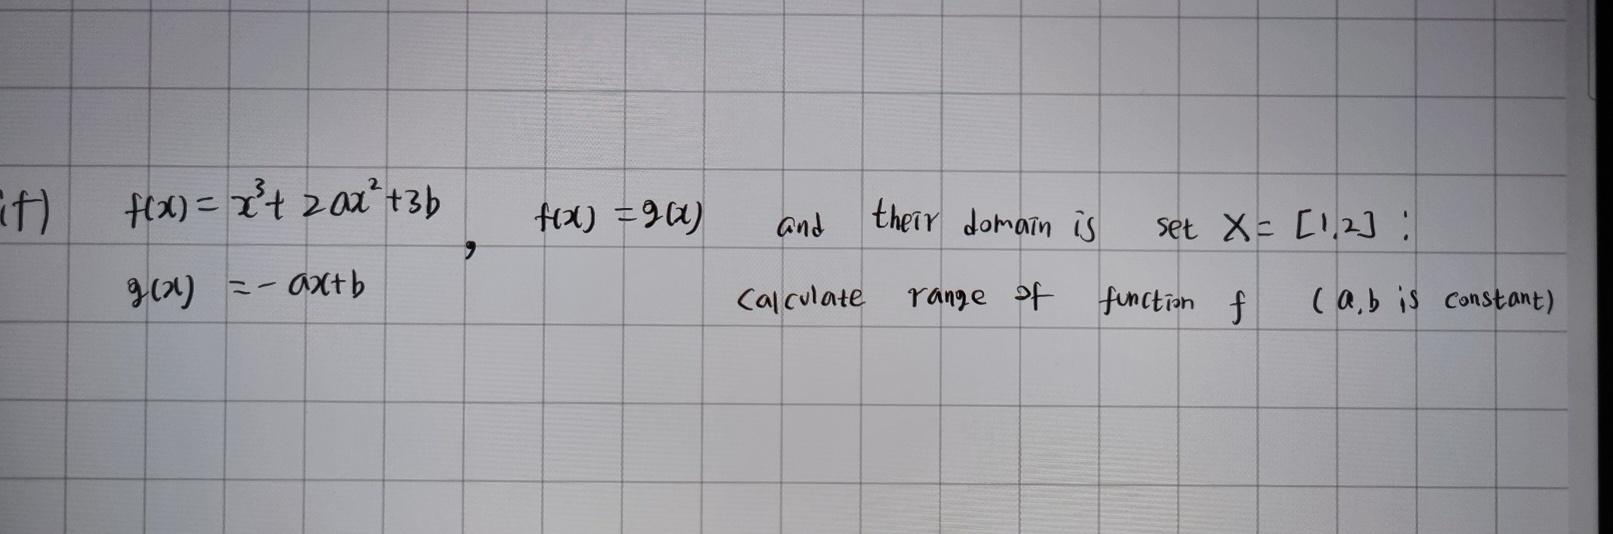 if) f(x) = x³ + 2ax² + 3b , f(x) = g(x) and their domain is set X = [1,2] :
g(x) = - ax+b calculate range of function f (a,b is constant)